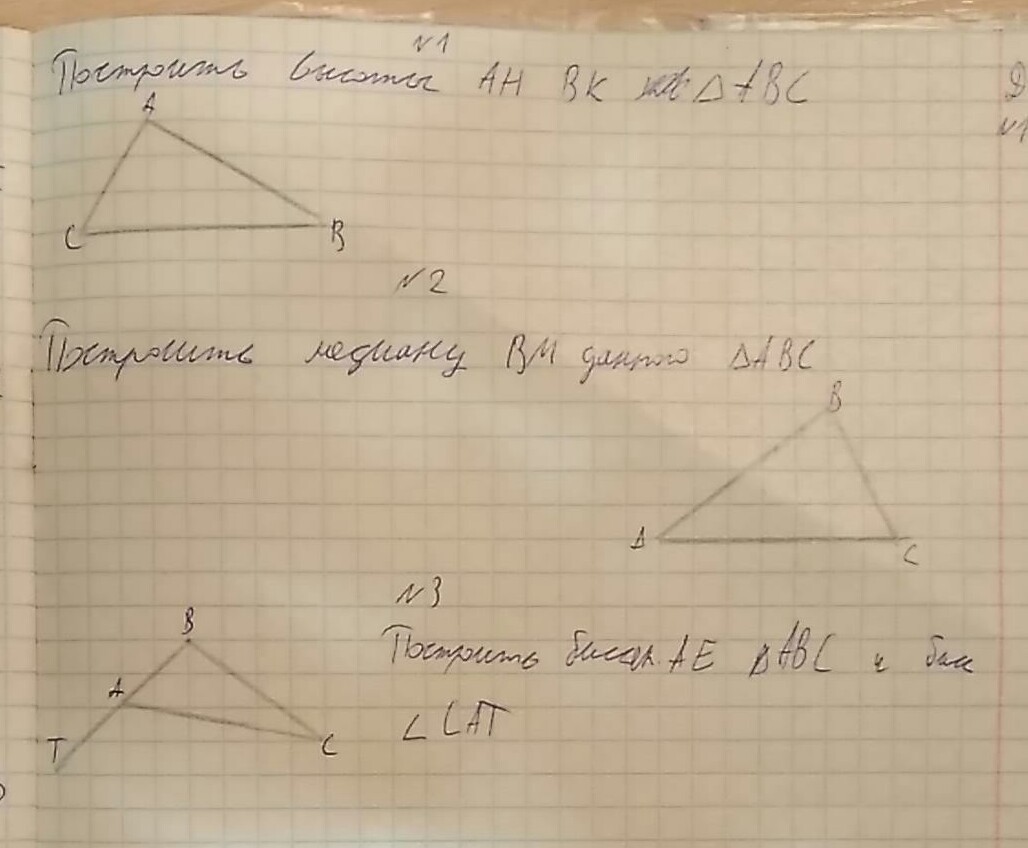 N1
Построить высоты AH BK ΔABC
Д
N1
A
C
B
N2
Построить медиану BM данного ΔABC
B
A
C
N3
B
Построить биссек. AE ΔABC и бис
A
∠CAT
T
C